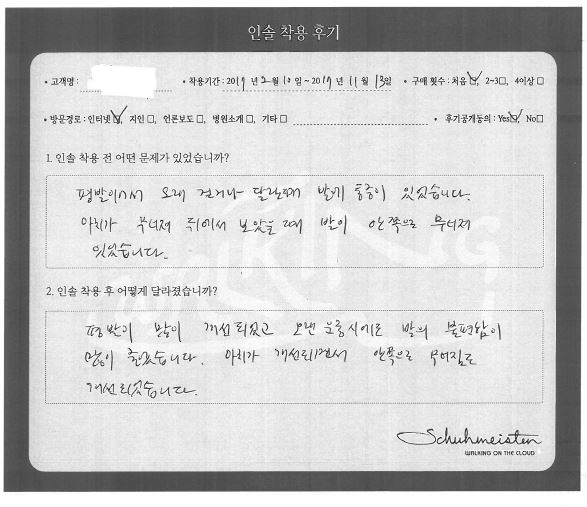 인솔 착용 후기
• 고객명: • 착용기간: 2019 년 2 월 10 일 ~ 2019 년 11 월 13일 • 구매 횟수: 처음☑, 2~3□, 4이상□
• 방문경로: 인터넷☑, 지인□, 언론보도□, 병원소개□, 기타□ • 후기공개동의: Yes☑, No□
1. 인솔 착용 전 어떤 문제가 있었습니까?
평발이여서 오래 걷거나 달릴때 발에 통증이 있었습니다.
아치가 무너져 뒤에서 보았을때 발이 안쪽으로 무너져
있었습니다.
2. 인솔 착용 후 어떻게 달라졌습니까?
평발이 많이 개선되었고 오랜 운동시에도 발의 불편함이
많이 줄었습니다. 아치가 개선되면서 안쪽으로 무너짐도
개선되었습니다.
Schuhmeister
WALKING ON THE CLOUD